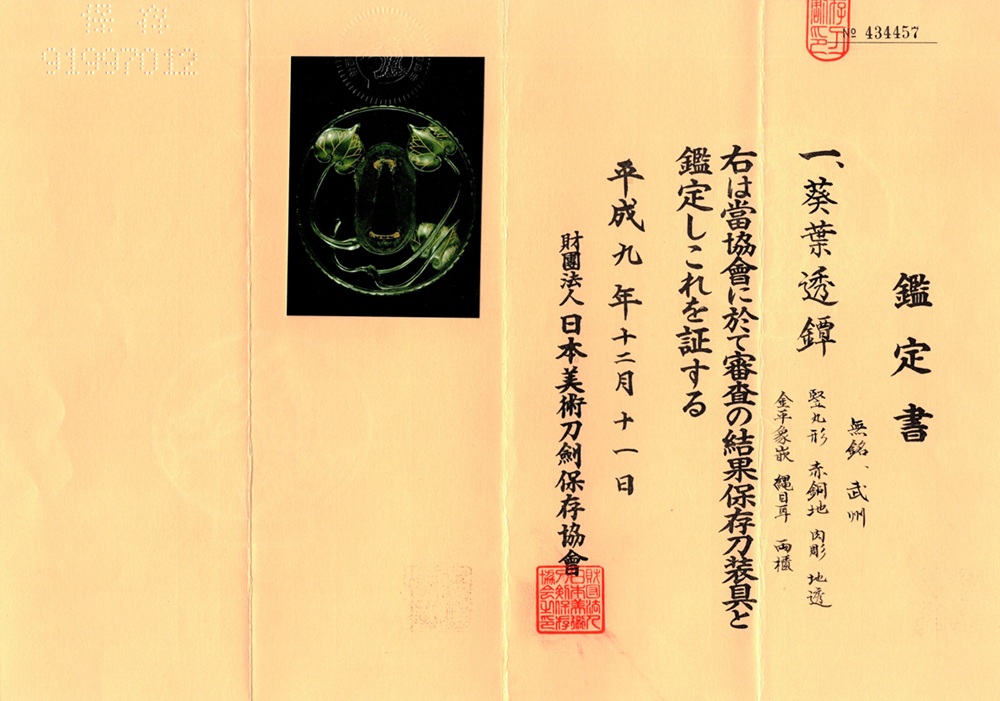 鑑定書
一、葵葉透鐔
無銘、武州
竪丸形 赤銅地 肉彫 地透
金平象嵌 縄目耳 両櫃
右は當協會に於て審査の結果保存刀装具と
鑑定しこれを証する
平成九年十二月十一日
財團法人 日本美術刀劍保存協會
№ 434457
保存
91997012
財団法人
日本美術
刀剣保存
協会之印